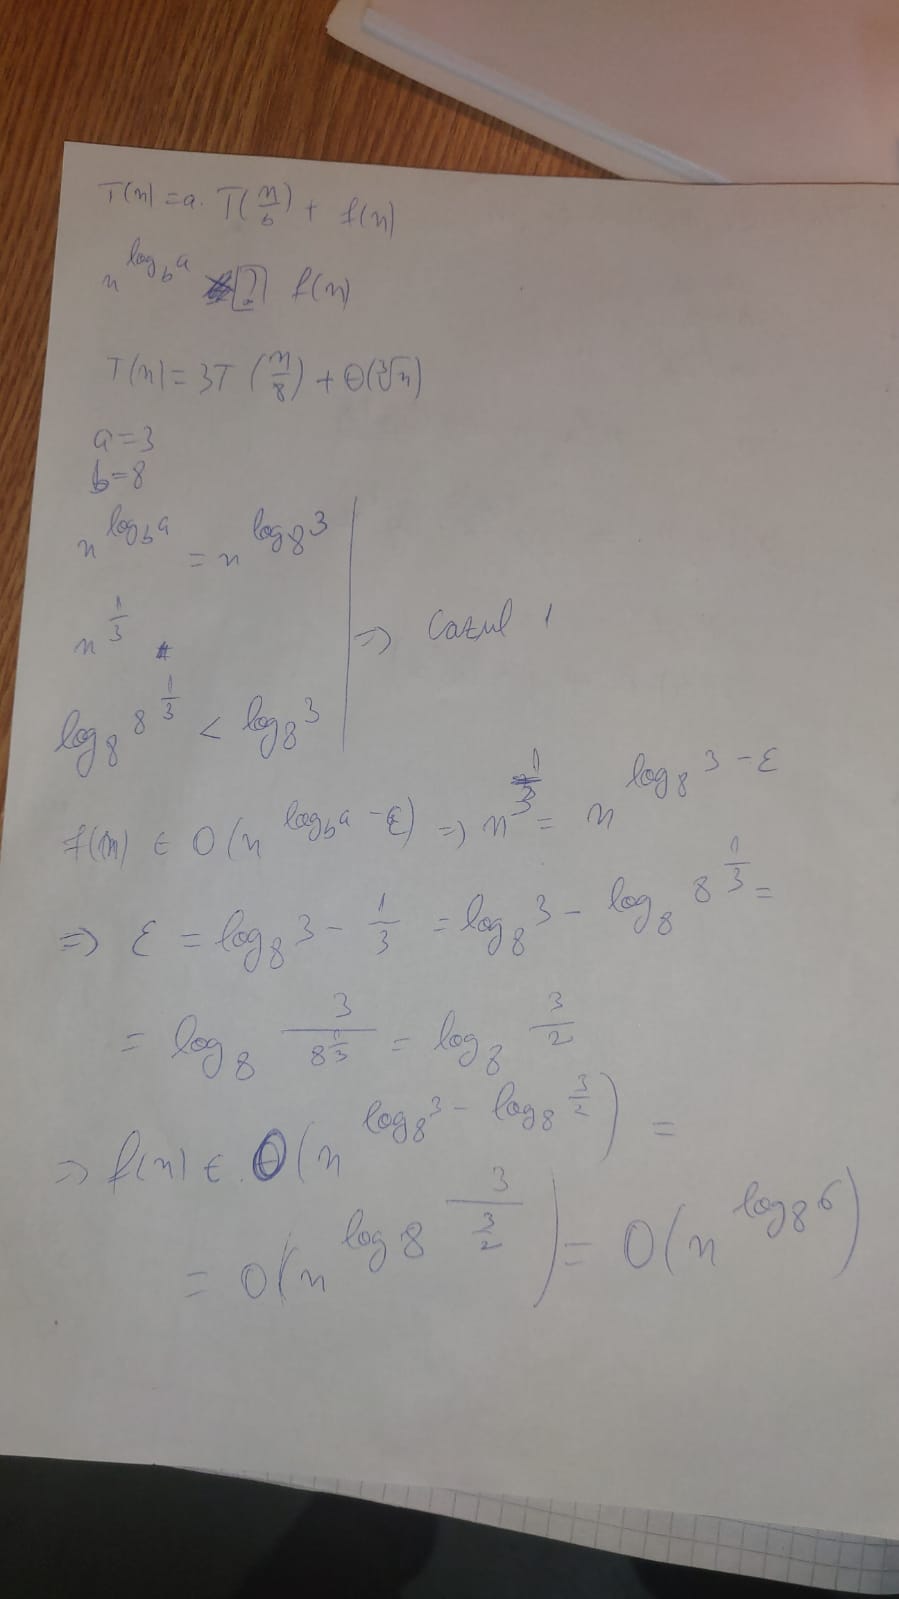 T(n) = a · T(n/b) + f(n)
n^(log_b a) [?] f(n)
T(n) = 3T (n/8) + Θ(∛n)
a = 3
b = 8
n^(log_b a) = n^(log_8 3)
n^(1/3)
⇒ Cazul 1
log_8 8^(1/3) < log_8 3
f(n) ∈ O(n^(log_b a - ε)) ⇒ n^(1/3) = n^(log_8 3 - ε)
⇒ ε = log_8 3 - 1/3 = log_8 3 - log_8 8^(1/3) =
= log_8 3/8^(1/3) = log_8 3/2
⇒ f(n) ∈ O(n^(log_8 3 - log_8 3/2)) =
= O(n^(log_8 3/(3/2))) = O(n^(log_8 6))